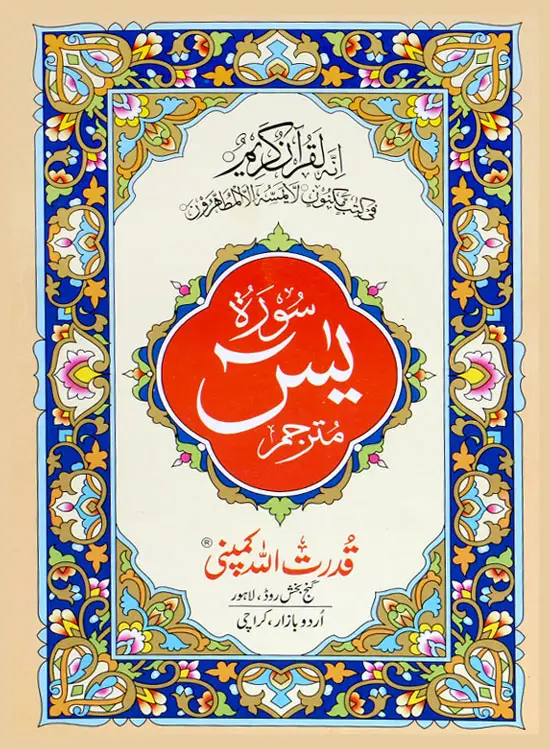 اِنَّهٗ لَقُرۡاٰنٌ كَرِيۡمٌ
فِىۡ كِتٰبٍ مَّكۡنُوۡنٍ لَّا يَمَسُّهٗۤ اِلَّا الۡمُطَهَّرُوۡنَ
سُورَةُ
يٰسٓ
مُترجم
قدرت اللہ کمپنی ®
گنج بخش روڈ، لاہور
اُردو بازار، کراچی